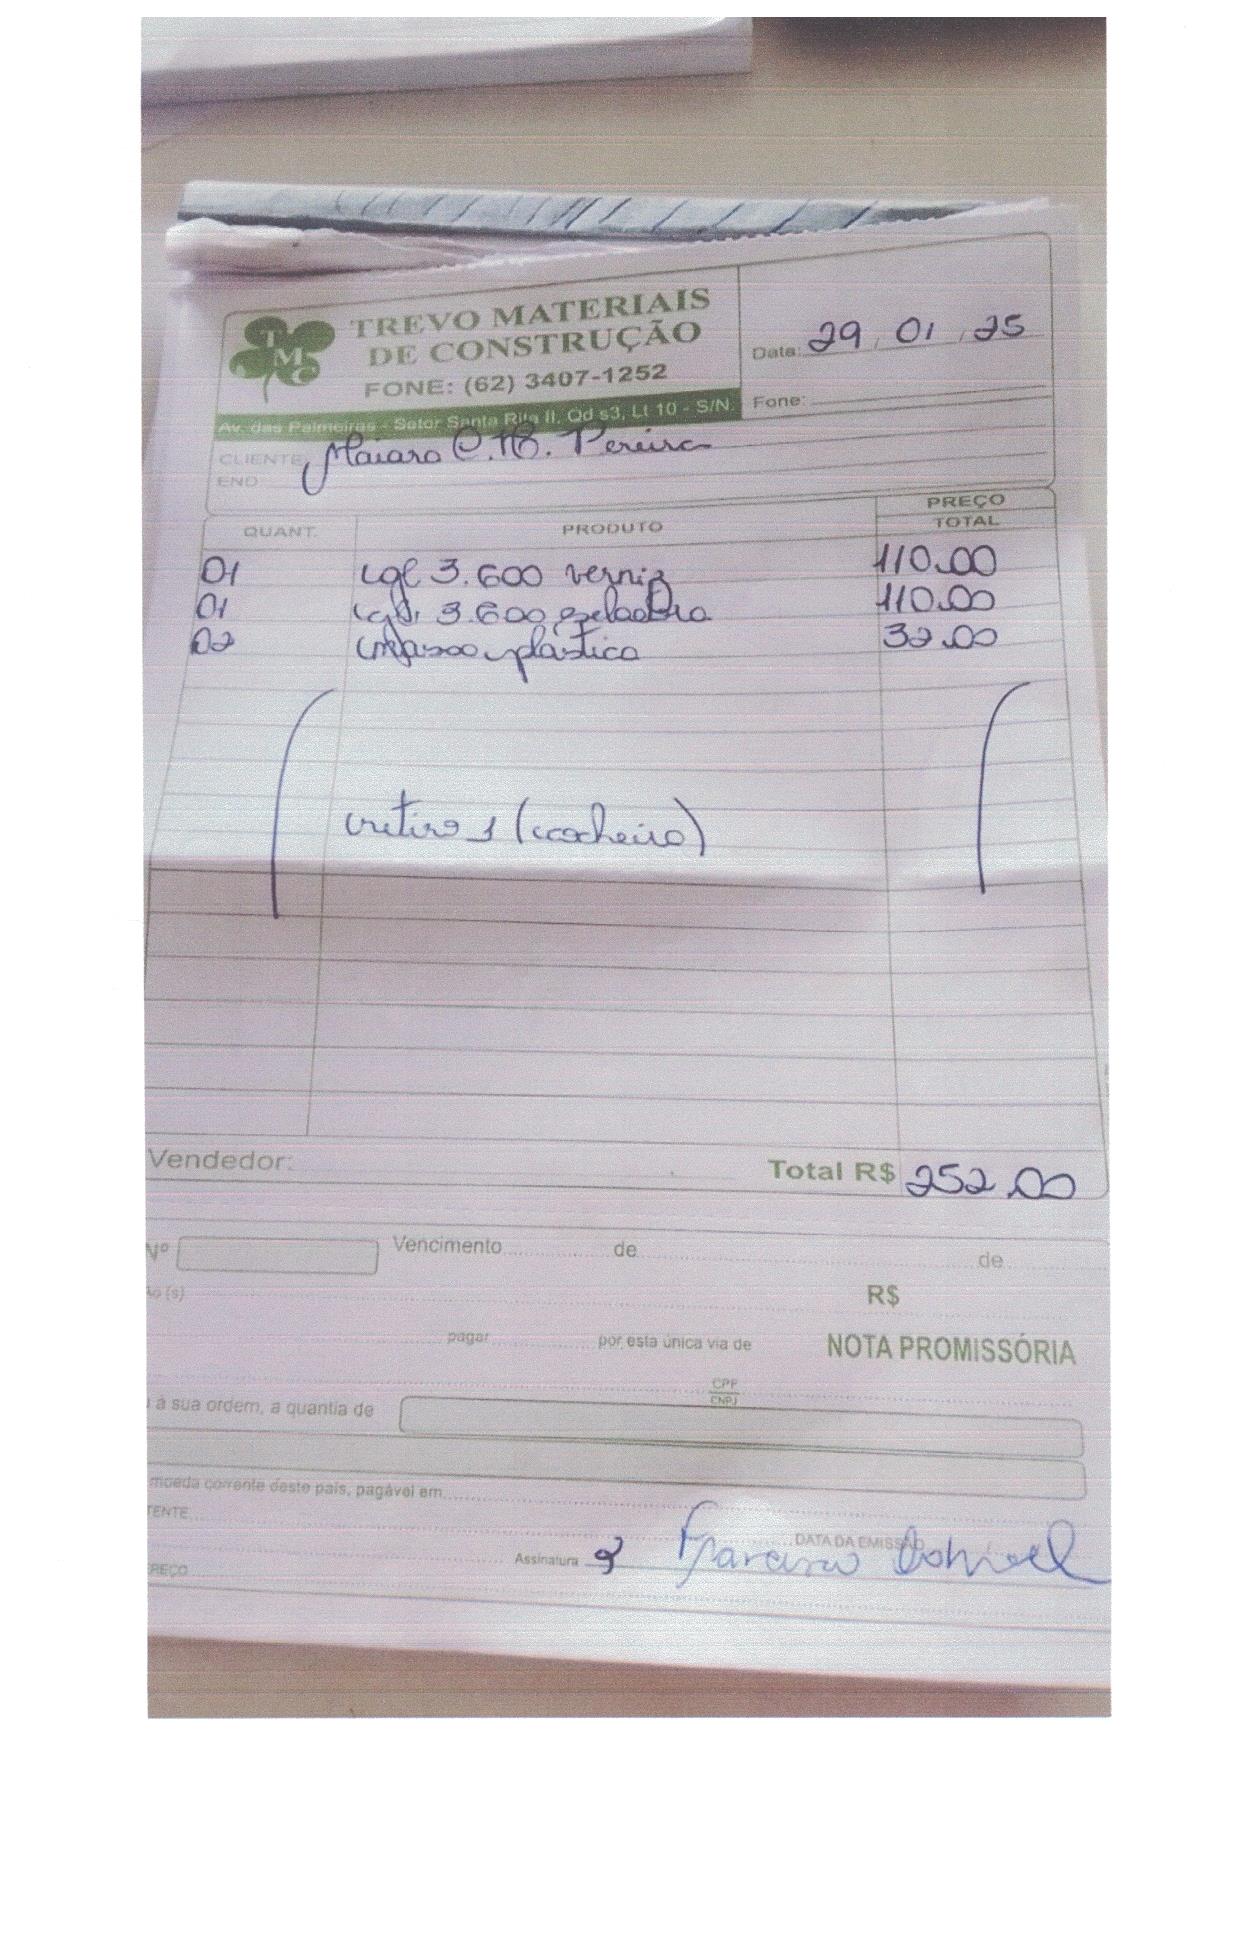 TMC
TREVO MATERIAIS
DE CONSTRUÇÃO
FONE: (62) 3407-1252
Av. das Palmeiras - Setor Santa Rita II, Qd s3, Lt 10 - S/N.
Data: 29 01 25
Fone:
CLIENTE Maiara C. B. Pereira
END
QUANT. PRODUTO PREÇO TOTAL
01 gl 3.600 verniz 110.00
01 gl 3.600 110.00
02 plástica 32.00
retiro 1 (cocheira)
Vendedor: Total R$ 252,00
Nº Vencimento de de
ão (s) R$
pagar por esta única via de NOTA PROMISSÓRIA
CPF
CNPJ
à sua ordem, a quantia de
moeda corrente deste país, pagável em
TENTE DATA DA EMISSÃO
Assinatura
REÇO